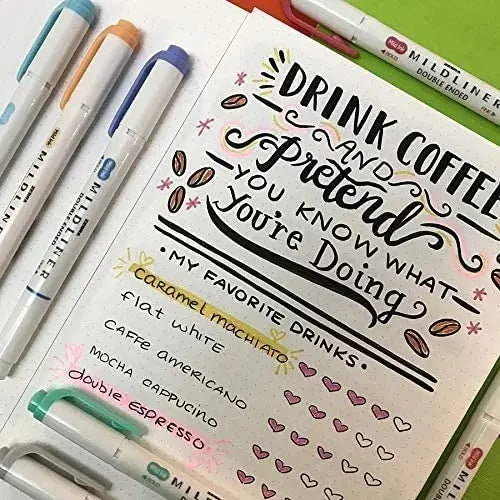 DRINK COFFEE
AND
pretend
YOU KNOW WHAT
You're Doing
• MY FAVORITE DRINKS •
caramel machiato
flat white
CAFFe americano
MOCHA CAPPUCINO
double ESPRESSO
MILDLINER
DOUBLE ENDED
MILDLINER
DOUBLE ENDED
MILDLINER
DOUBLE ENDED
MILDLINER